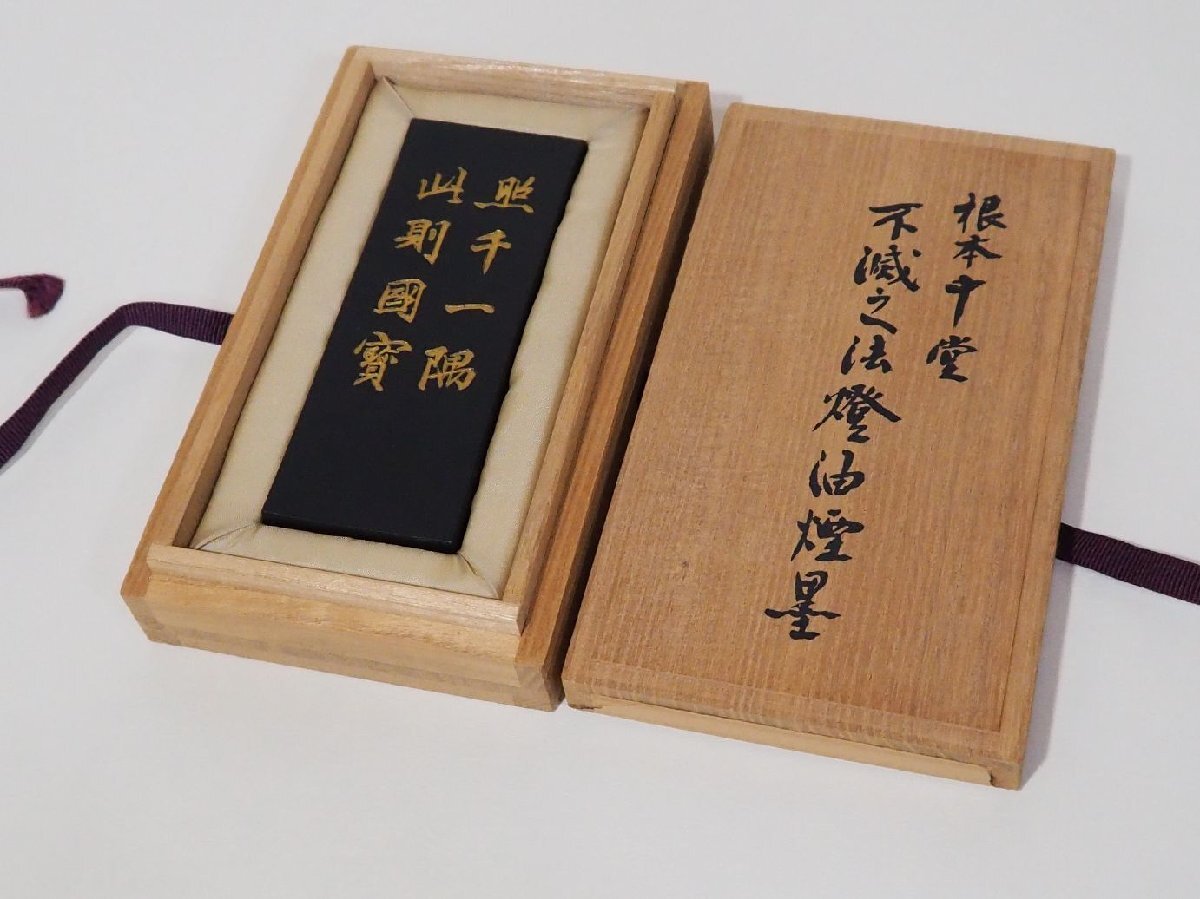 照千一隅
此則國寳
根本中堂
不滅之法燈油煙墨